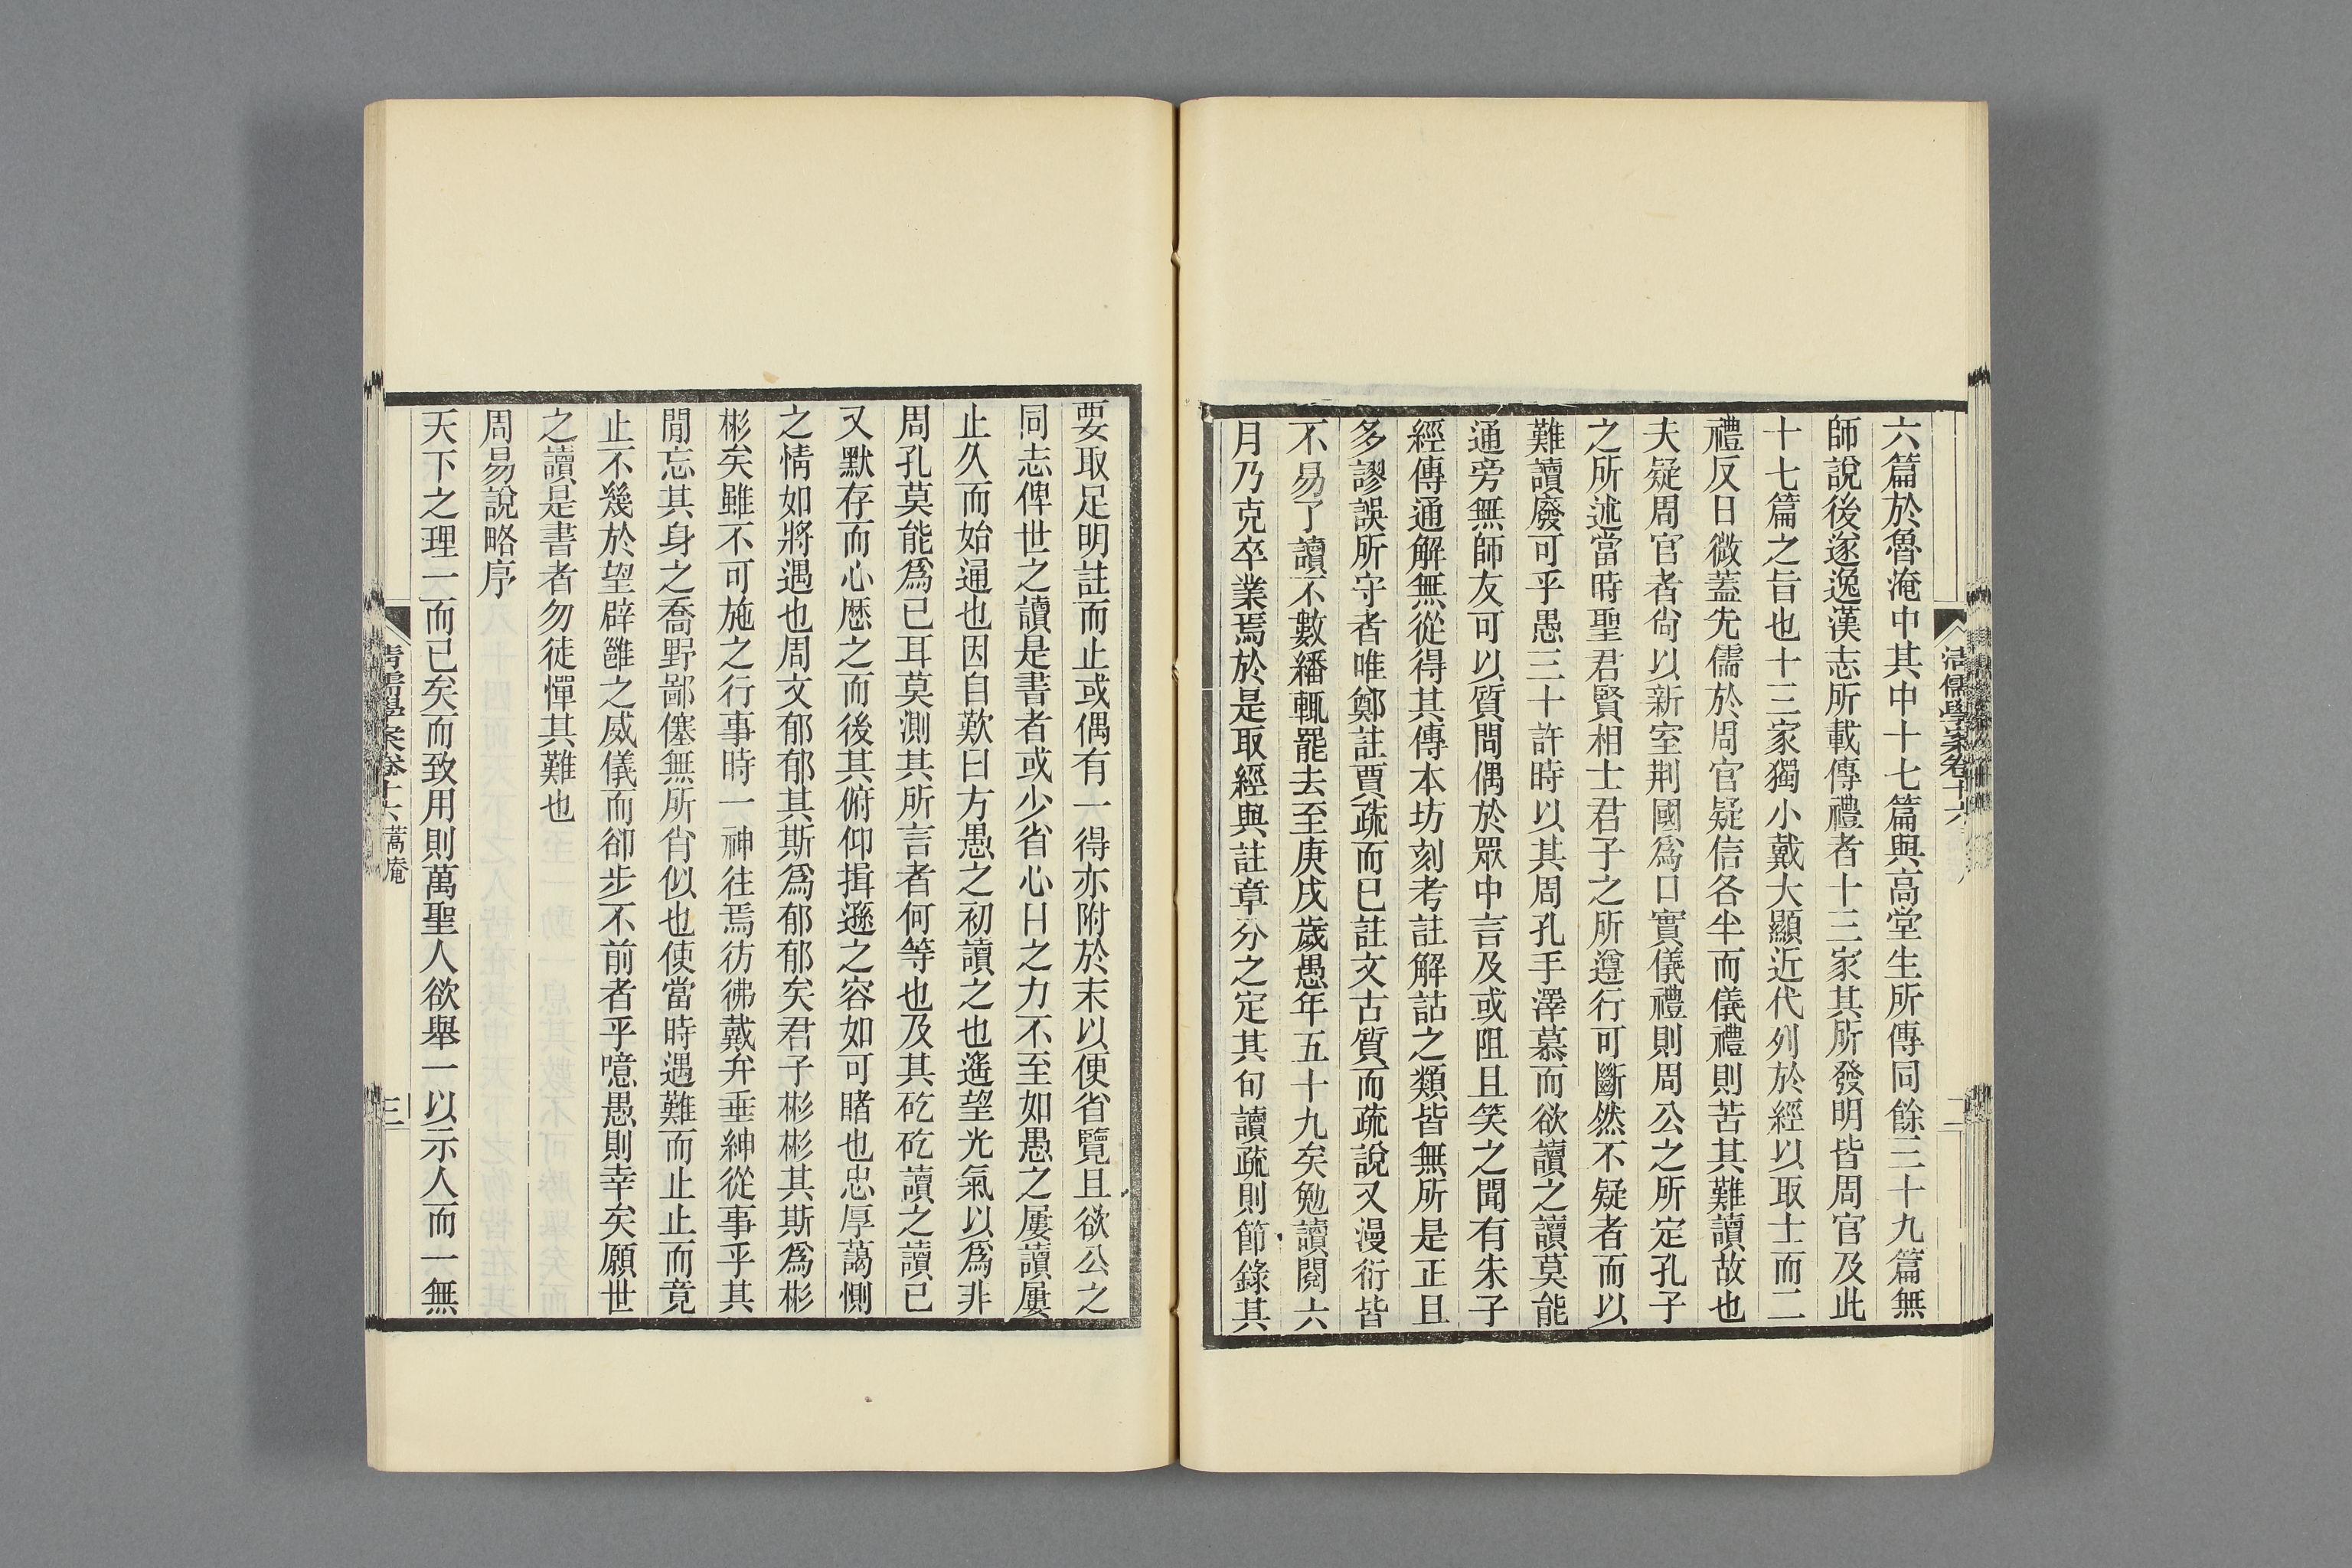 清儒學案卷十六
二
六篇於魯淹中其中十七篇與高堂生所傳同餘三十九篇無
師說後遂逸漢志所載傳禮者十三家其所發明皆周官及此
十七篇之旨也十三家獨小戴大顯近代列於經以取士而二
禮反日微蓋先儒於周官疑信各半而儀禮則苦其難讀故也
夫疑周官者尙以新室荆國爲口實儀禮則周公之所定孔子
之所述當時聖君賢相士君子之所遵行可斷然不疑者而以
難讀廢可乎愚三十許時以其周孔手澤慕而欲讀之讀莫能
通旁無師友可以質問偶於眾中言及或阻且笑之聞有朱子
經傳通解無從得其傳本坊刻考註解詁之類皆無所是正且
多謬誤所守者唯鄭註賈疏而已註文古質而疏說又漫衍皆
不易了讀不數繙輒罷去至庚戌歲愚年五十九矣勉讀閱六
月乃克卒業焉於是取經與註章分之定其句讀疏則節錄其
要取足明註而止或偶有一得亦附於末以便省覽且欲公之
同志俾世之讀是書者或少省心目之力不至如愚之屢讀屢
止久而始通也因自歎曰方愚之初讀之也遙望光氣以爲非
周孔莫能爲已耳莫測其所言者何等也及其矻矻讀之讀已
又默存而心歷之而後其俯仰揖遜之容如可睹也忠厚藹惻
之情如將遇也周文郁郁其斯爲郁郁矣君子彬彬其斯爲彬
彬矣雖不可施之行事時一神往焉彷彿戴弁垂紳從事乎其
閒忘其身之喬野鄙僿無所肖似也使當時遇難而止止而竟
止不幾於望辟雝之威儀而卻步不前者乎噫愚則幸矣願世
之讀是書者勿徒憚其難也
周易說略序
天下之理一而已矣而致用則萬聖人欲舉一以示人而一無
清儒學案卷十六 蒿庵
三